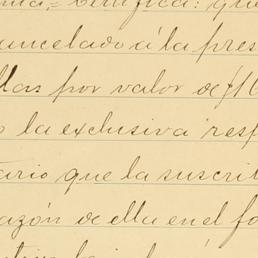 certifica: que
ancelado á la pres
llas por valor de $1
o la exclusiva resp
tario que la suscrit
azón de ella en el fo